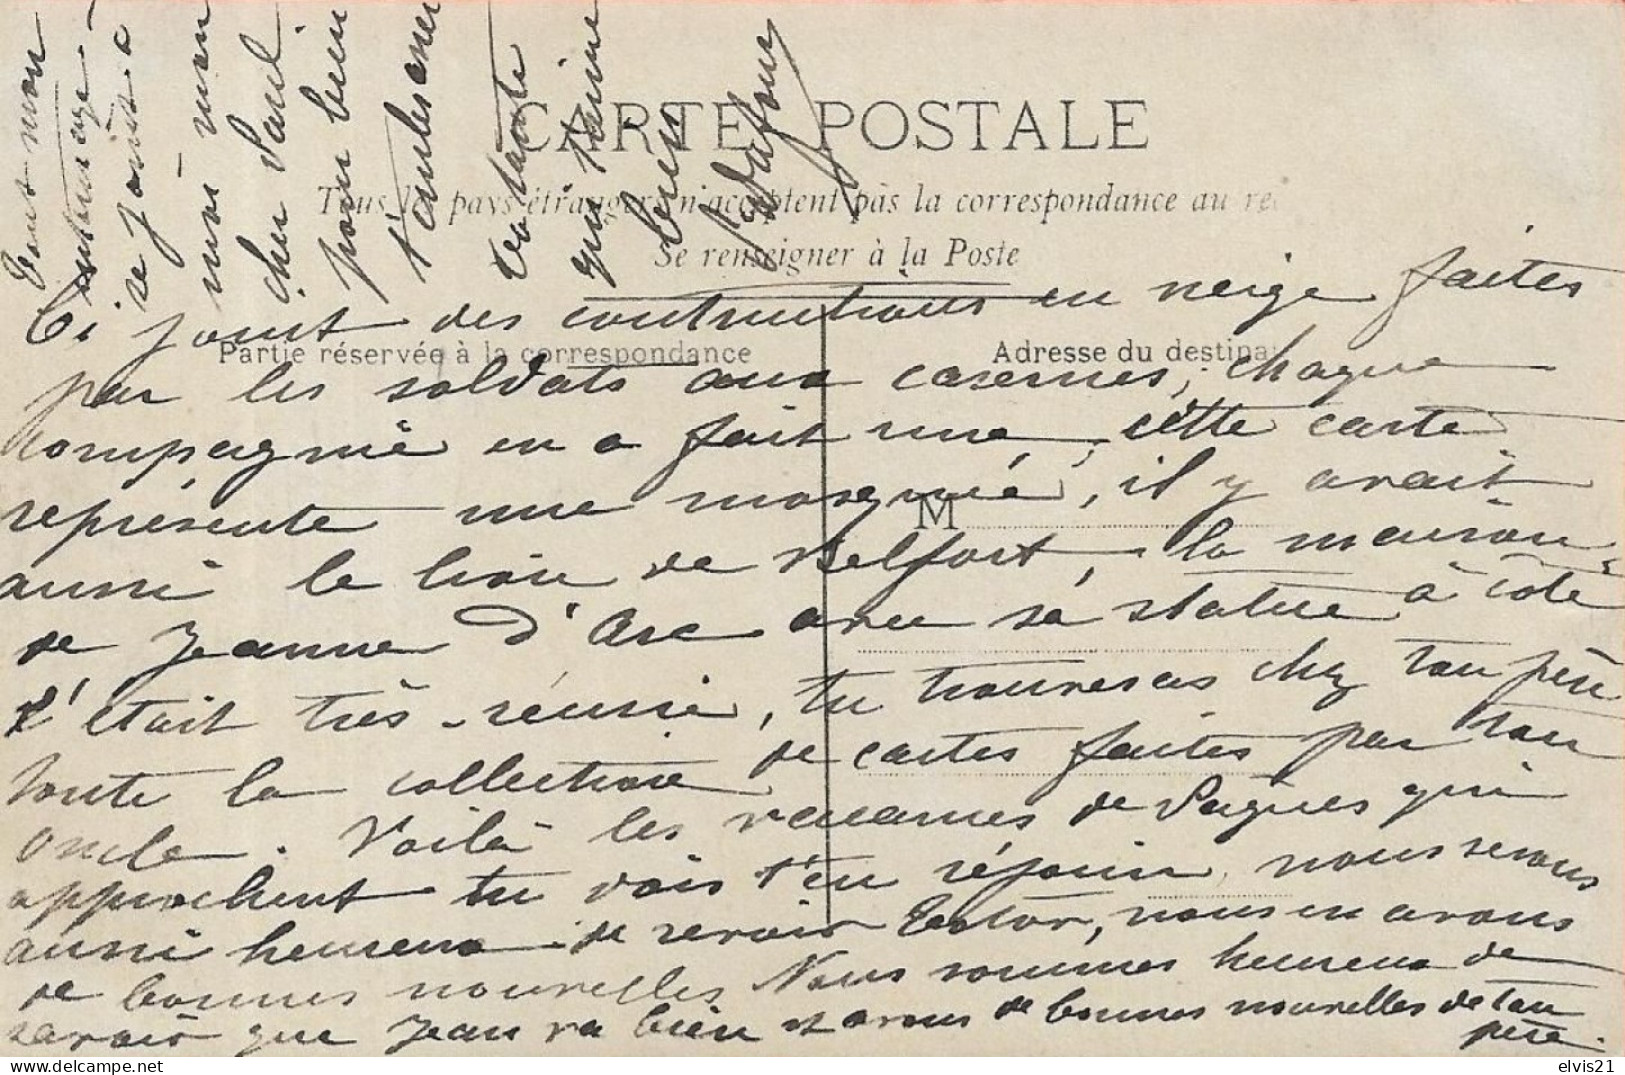 CARTE POSTALE
Tous les pays étrangers n'acceptent pas la correspondance au re
Se renseigner à la Poste
Partie réservée à la correspondance
Adresse du destina
M
Ci joint des contructions en neige faites
par les soldats aux casernes, chaque
compagnie en a fait une, cette carte
représente une mosquée, il y avait
aussi le lion de Belfort, la maison
de Jeanne d'Arc avec sa statue à côté
c'était très réussi, tu trouveras chez ton père
toute la collection de cartes faites par ton
oncle. Voilà les vacances de Pâques qui
approchent tu vas t'en réjouir, nous serons
aussi heureux de revoir Castor, nous en avons
de bonnes nouvelles Nous sommes heureux de
savoir que Jean va bien et avons de bonnes nouvelles de ton
père.
Tout mon
entourage
se joint à
moi mon
cher Paul
pour bien
t'embrasser
ta tante
qui t'aime
bien